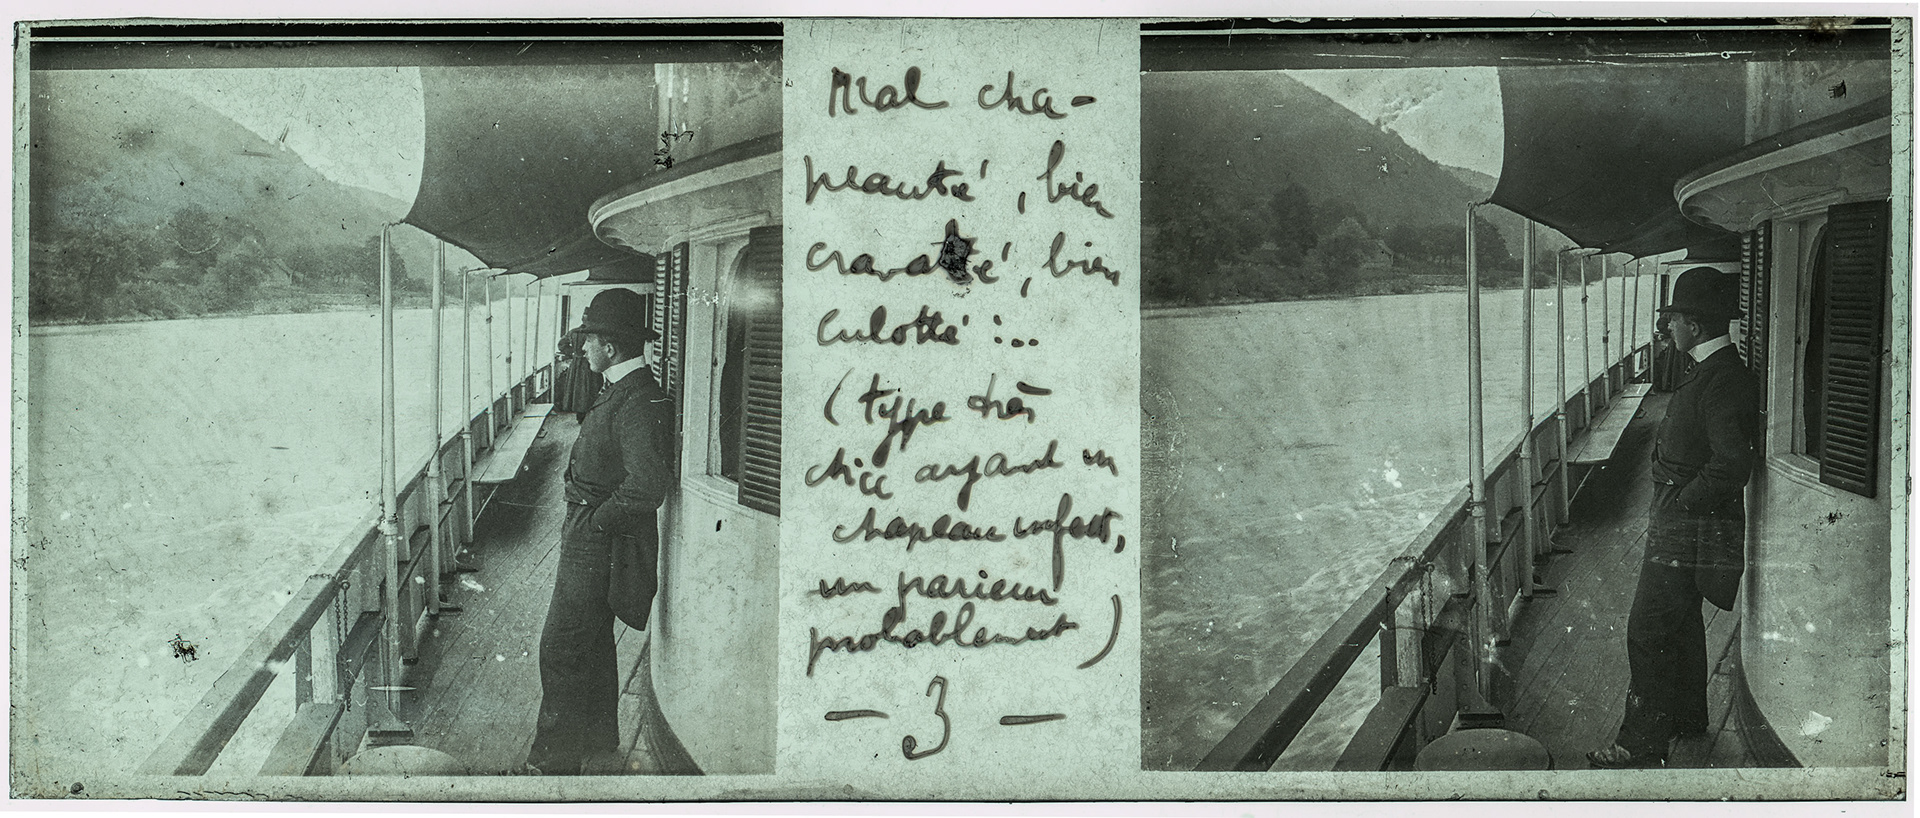 Mal cha-
peauté, bien
cravaté, bien
culotté :..
(type très
chicc ayant un
chapeau infect,
un parieur
probablement)
— 3 —